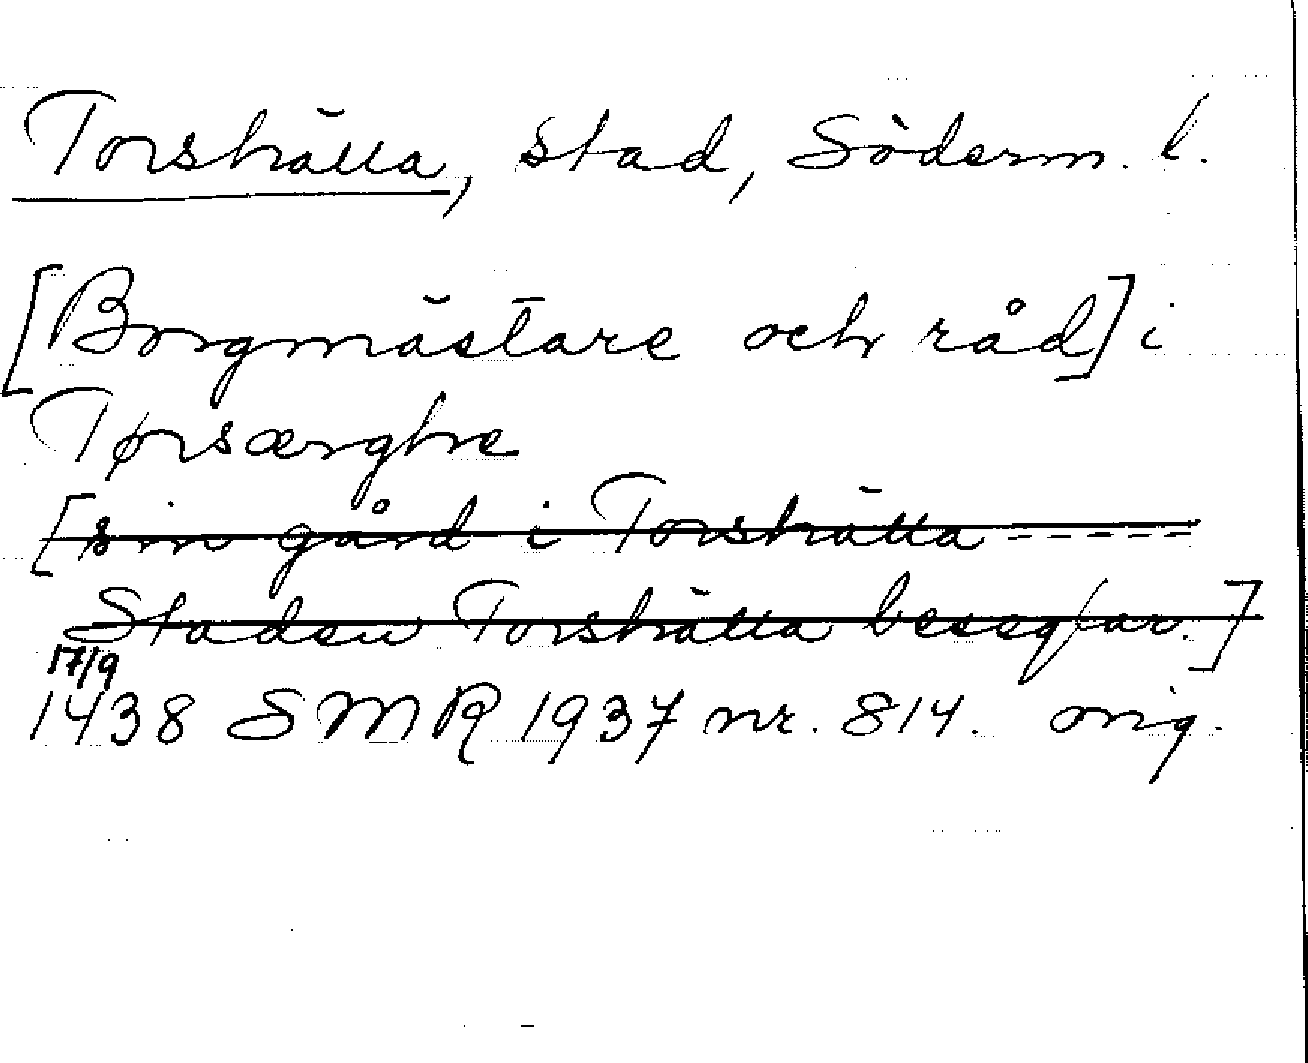 Torshälla, stad, Söderm. l.
[Borgmästare och råd] i
Tørsærghre
[sin gård i Torshälla -----
Staden Torshälla beseglar.]
17/9
1438 SMR 1937 nr. 814. orig.